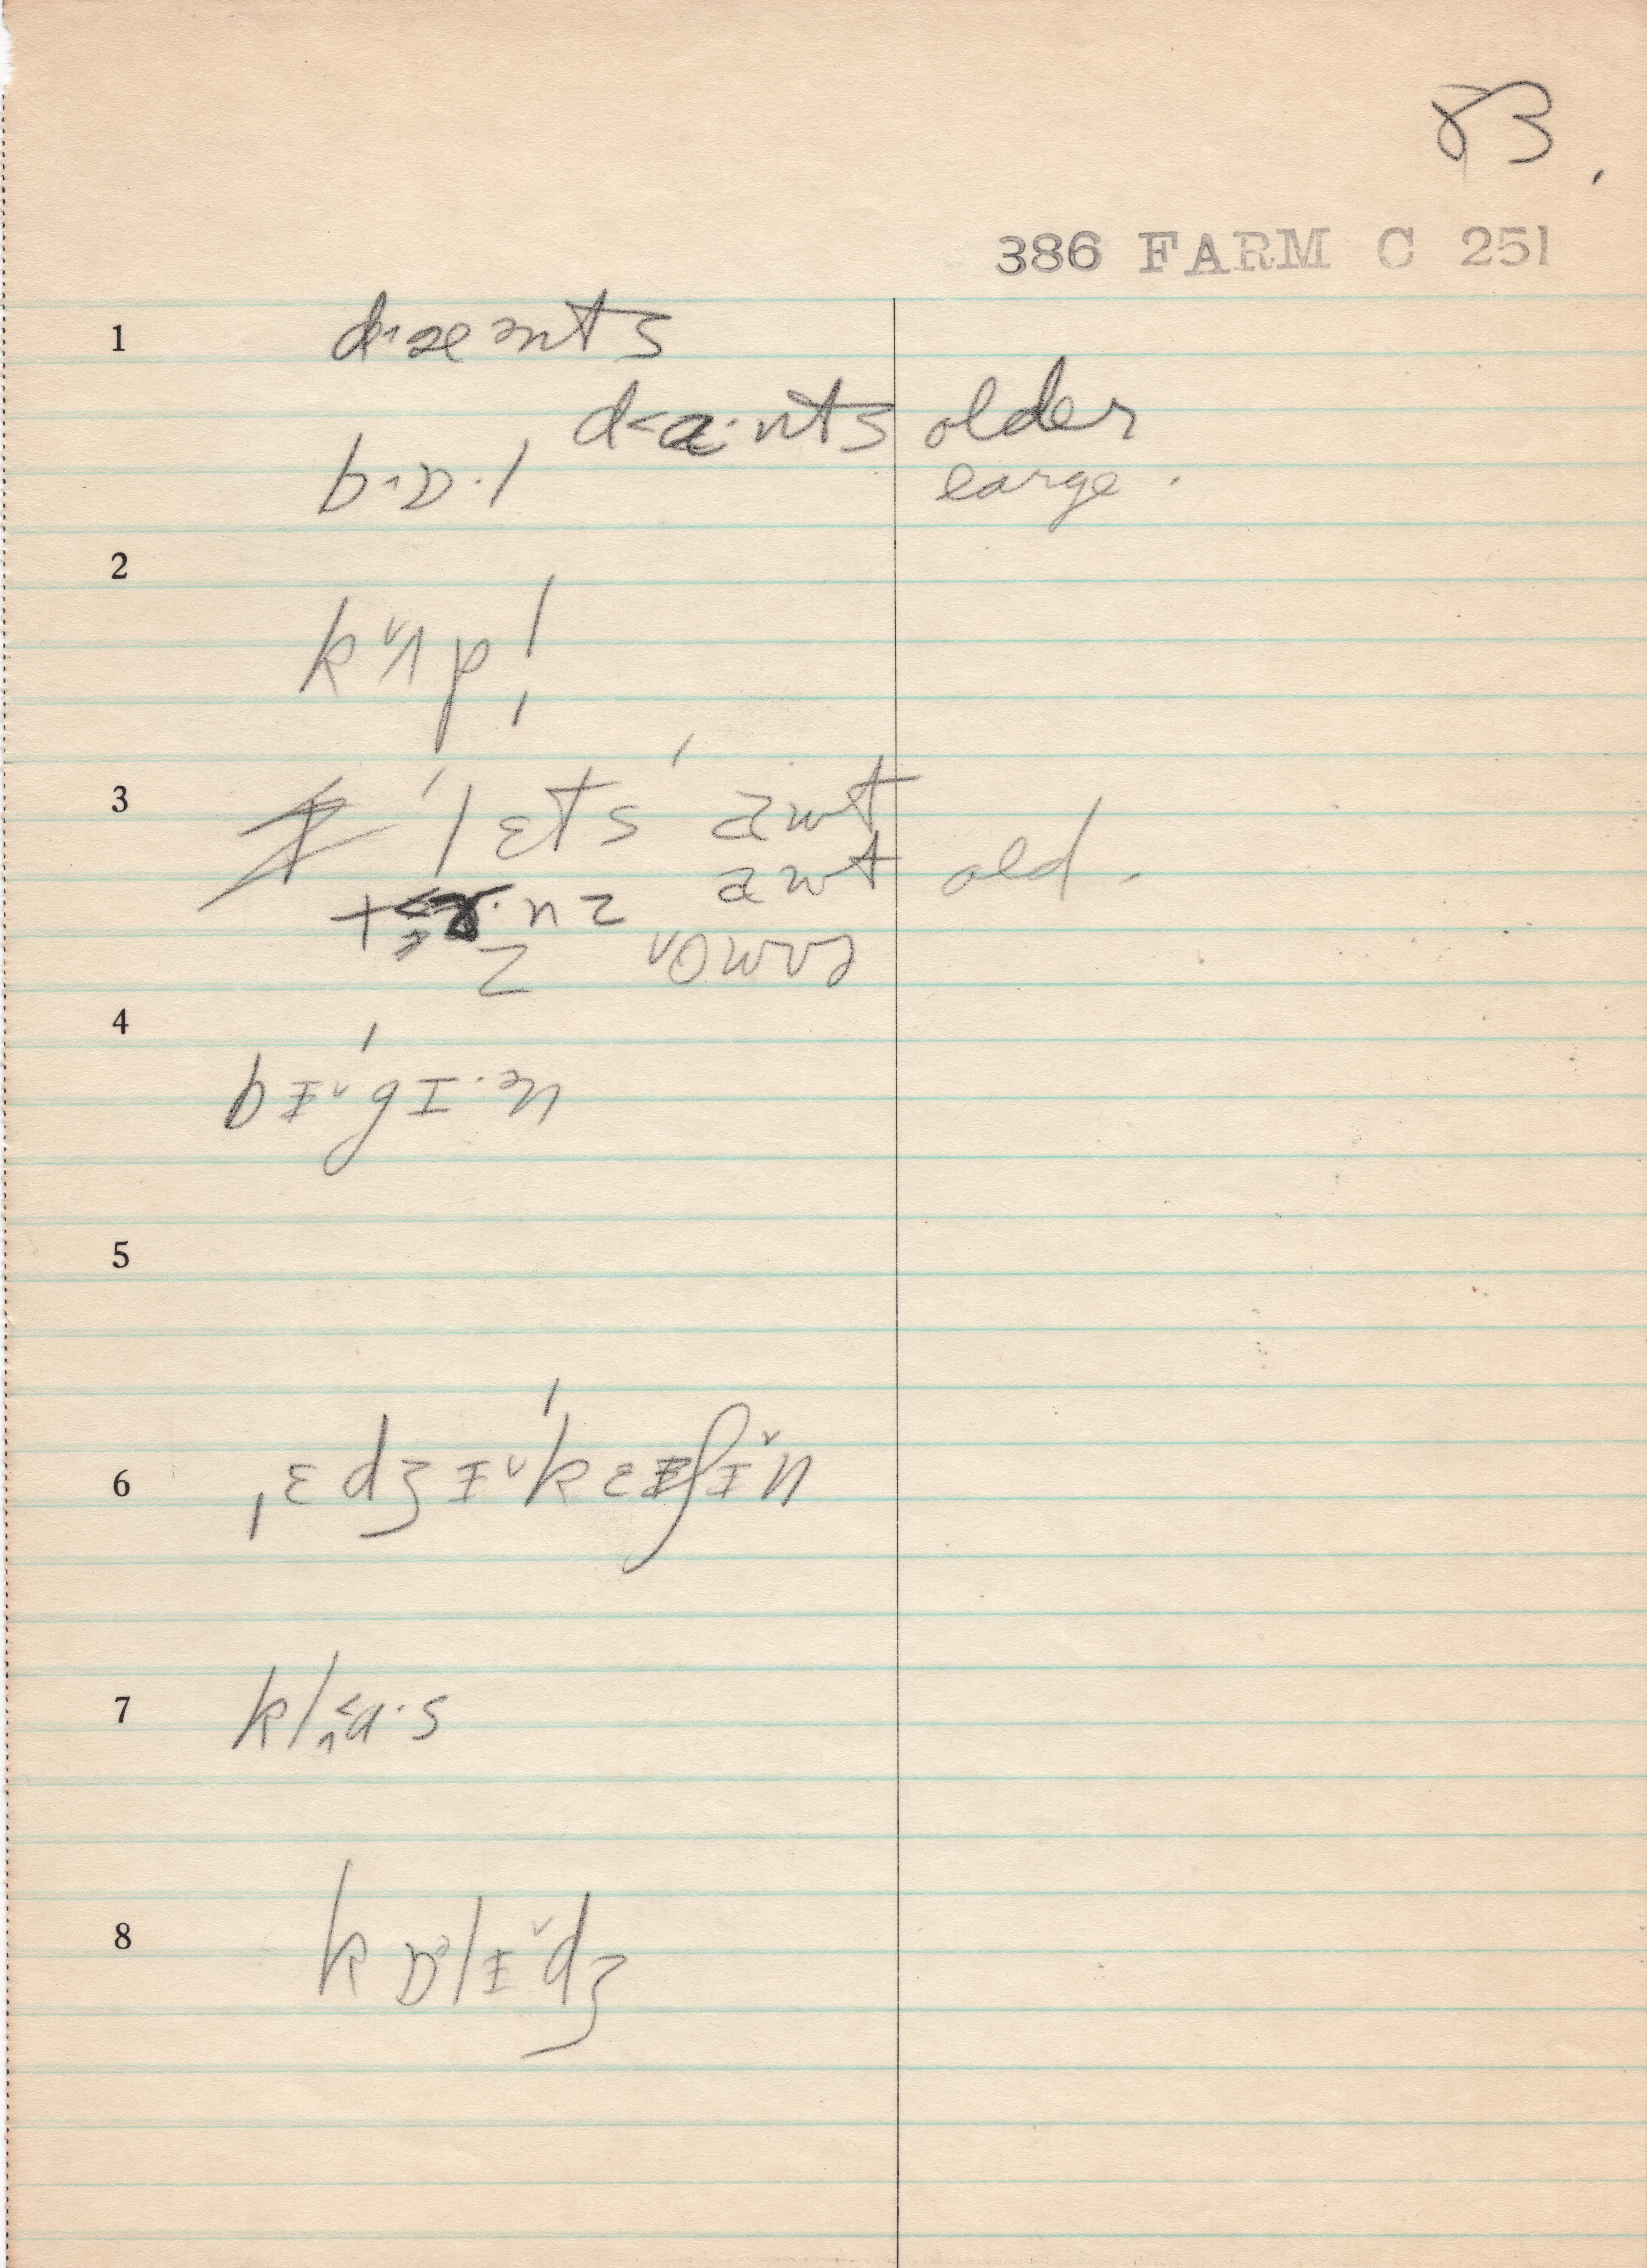 83.
386 FARM C 251
1 d˄æənts
d˂a·nts older
b˄ɒ·l large.
2
k˅ʌpl̩
3 ˈlɛtsˈ aʊt
aʊt old.
t˂ɜ·nz
z ˅oʊvɚ
4
bɨ˅ˈgɪ·ən
5
6 ˌɛdʒɨ˅ˈkɛɨʃɨ˅n
7 kl˄˂a·s
8 kɒlɨ˅dʒ